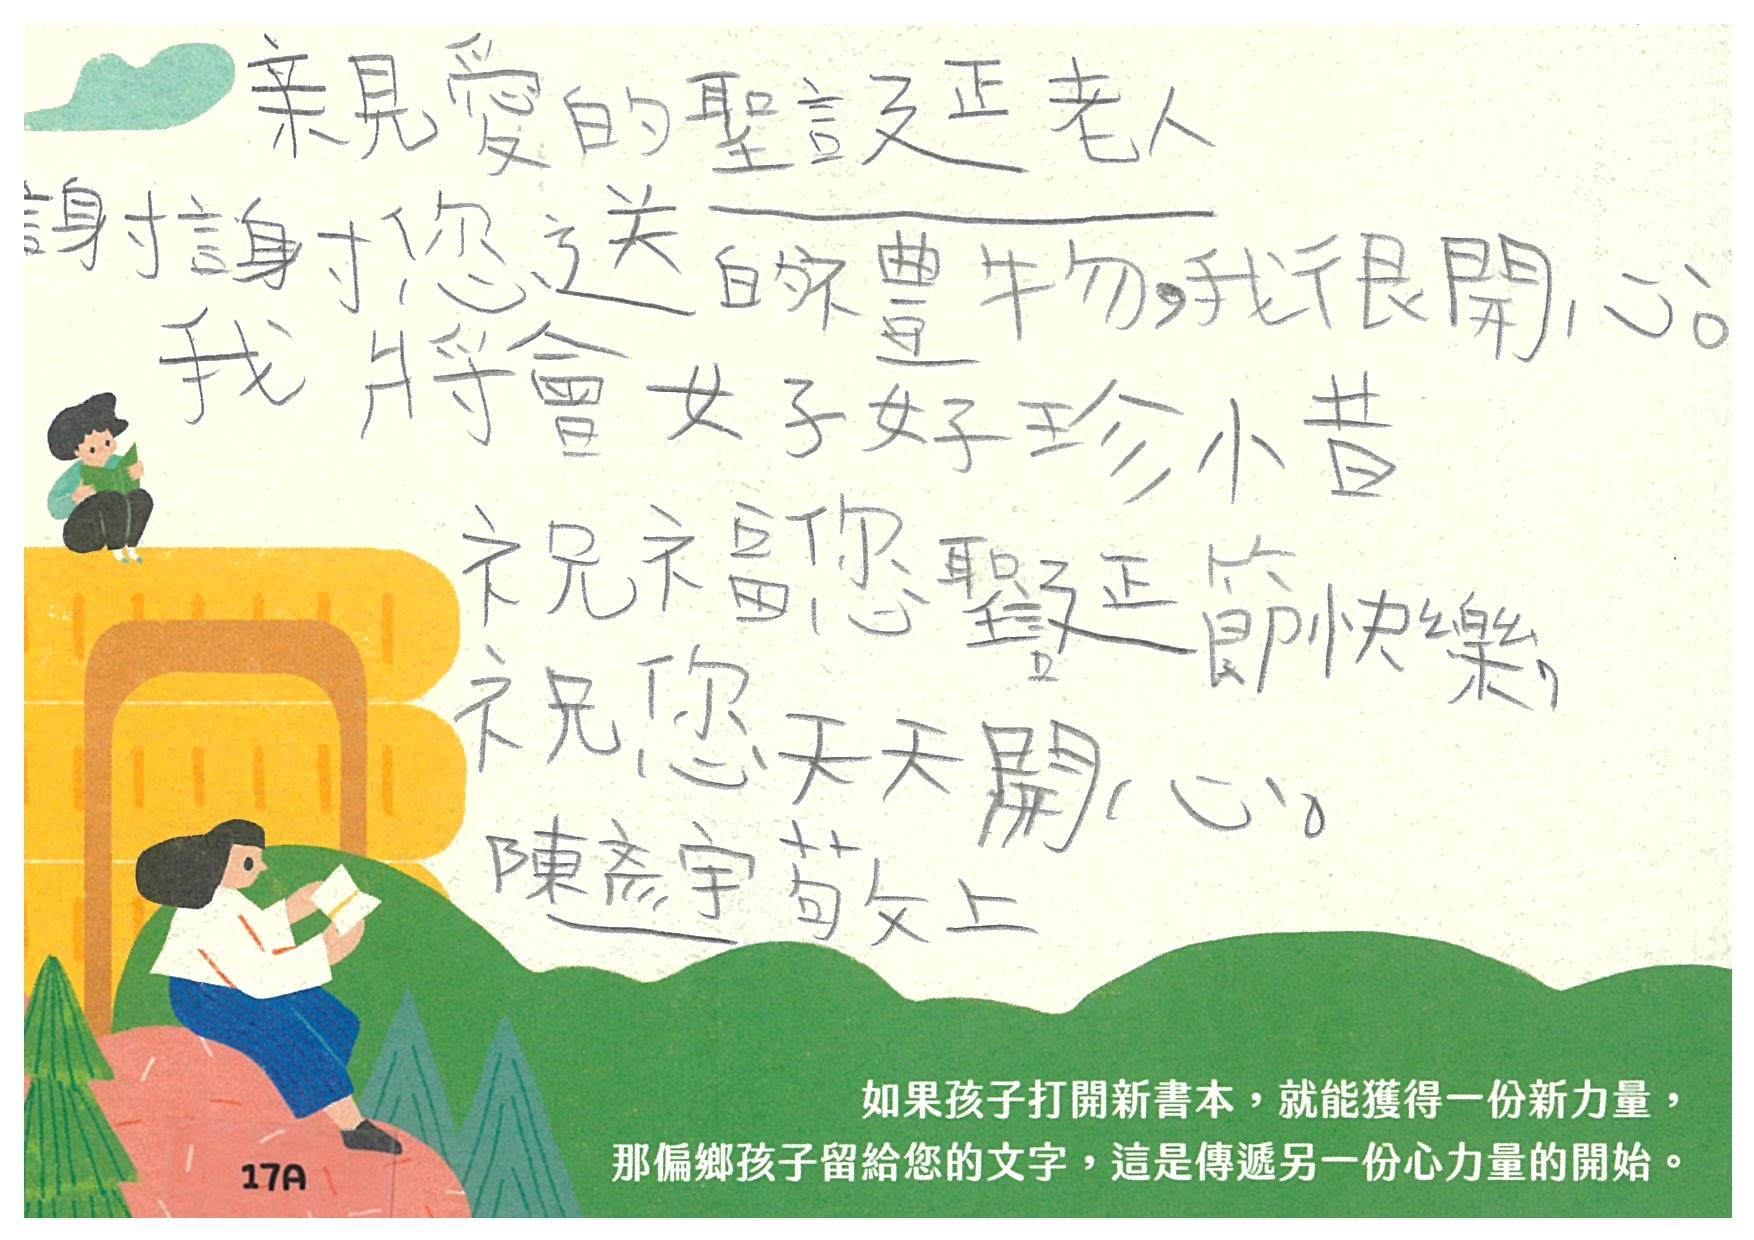 親愛的聖誕老人
謝謝您送的禮物，我很開心。
我將會好好珍惜
祝福您聖誕節快樂，
祝您天天開心。
陳彥宇敬上
17A
如果孩子打開新書本，就能獲得一份新力量，
那偏鄉孩子留給您的文字，這是傳遞另一份心力量的開始。